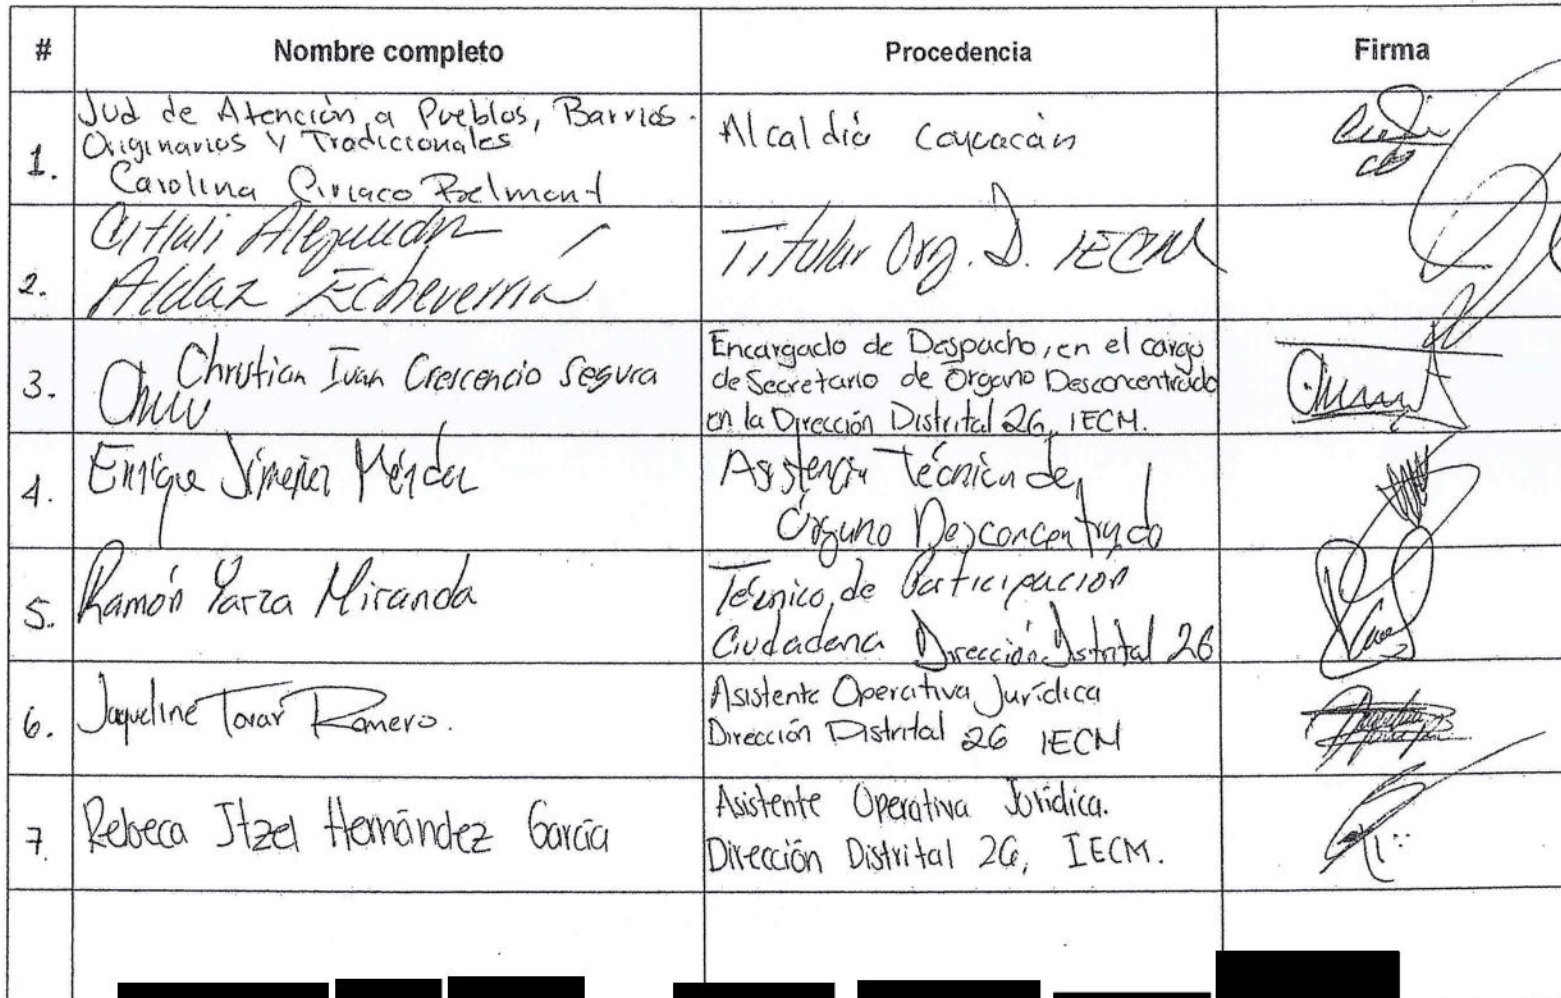 # Nombre completo Procedencia Firma
1. Jud de Atención a Pueblos, Barrios
Originarios y Tradicionales
Carolina Ciriaco Belmont
Alcaldía Coyoacán
2. Citlali Alejandra
Aldaz Echeverría
Titular Org. D. IECM
3. Christian Ivan Crescencio Segura
Encargado de Despacho, en el cargo
de Secretario de Órgano Desconcentrado
en la Dirección Distrital 26, IECM.
4. Enrique Jiménez Méndez
Asistencia Técnica de
Órgano Desconcentrado
5. Ramón Yarza Miranda
Técnico de Participación
Ciudadana Dirección Distrital 26
6. Jaqueline Tovar Romero.
Asistente Operativa Jurídica
Dirección Distrital 26 IECM
7. Rebeca Itzel Hernández García
Asistente Operativa Jurídica.
Dirección Distrital 26, IECM.